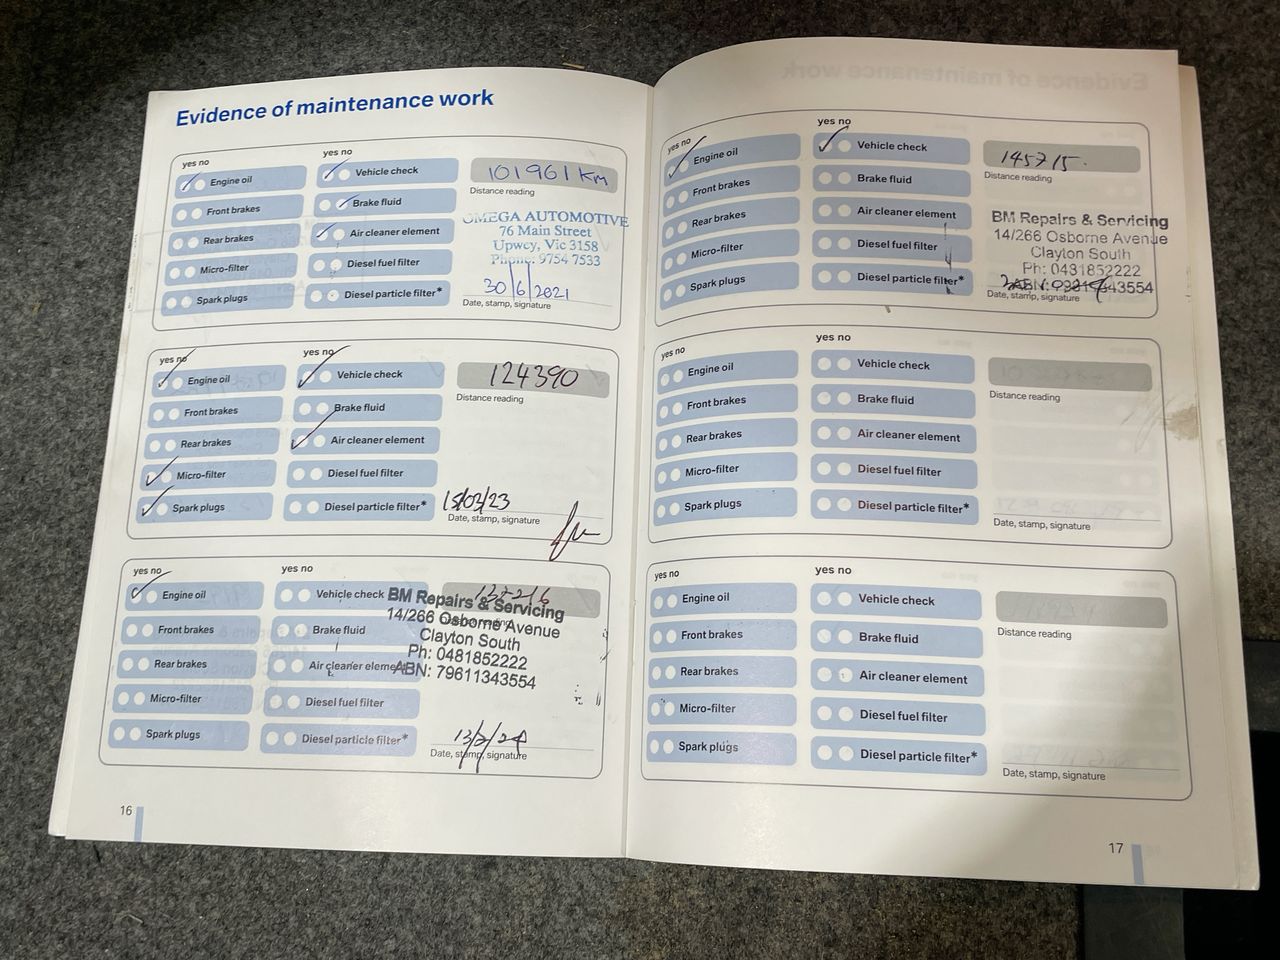 Evidence of maintenance work
yes no
yes no
Engine oil
Vehicle check
101961 KM
Distance reading
Front brakes
Brake fluid
Rear brakes
Air cleaner element
Micro-filter
Diesel fuel filter
Spark plugs
Diesel particle filter*
OMEGA AUTOMOTIVE
76 Main Street
Upwey, Vic 3158
Phone: 9754 7533
30/6/2021
Date, stamp, signature
yes no
yes no
Engine oil
Vehicle check
124390
Distance reading
Front brakes
Brake fluid
Rear brakes
Air cleaner element
Micro-filter
Diesel fuel filter
Spark plugs
Diesel particle filter*
15/03/23
Date, stamp, signature
yes no
yes no
Engine oil
Vehicle check
Front brakes
Brake fluid
Rear brakes
Air cleaner element
Micro-filter
Diesel fuel filter
Spark plugs
Diesel particle filter*
BM Repairs & Servicing
14/266 Osborne Avenue
Clayton South
Ph: 0481852222
ABN: 79611343554
Date, stamp, signature
16
yes no
yes no
Engine oil
Vehicle check
145715
Distance reading
Front brakes
Brake fluid
Rear brakes
Air cleaner element
Micro-filter
Diesel fuel filter
Spark plugs
Diesel particle filter*
BM Repairs & Servicing
14/266 Osborne Avenue
Clayton South
Date, stamp, signature
yes no
yes no
Engine oil
Vehicle check
Distance reading
Front brakes
Brake fluid
Rear brakes
Air cleaner element
Micro-filter
Diesel fuel filter
Spark plugs
Diesel particle filter*
Date, stamp, signature
yes no
yes no
Engine oil
Vehicle check
Distance reading
Front brakes
Brake fluid
Rear brakes
Air cleaner element
Micro-filter
Diesel fuel filter
Spark plugs
Diesel particle filter*
Date, stamp, signature
17